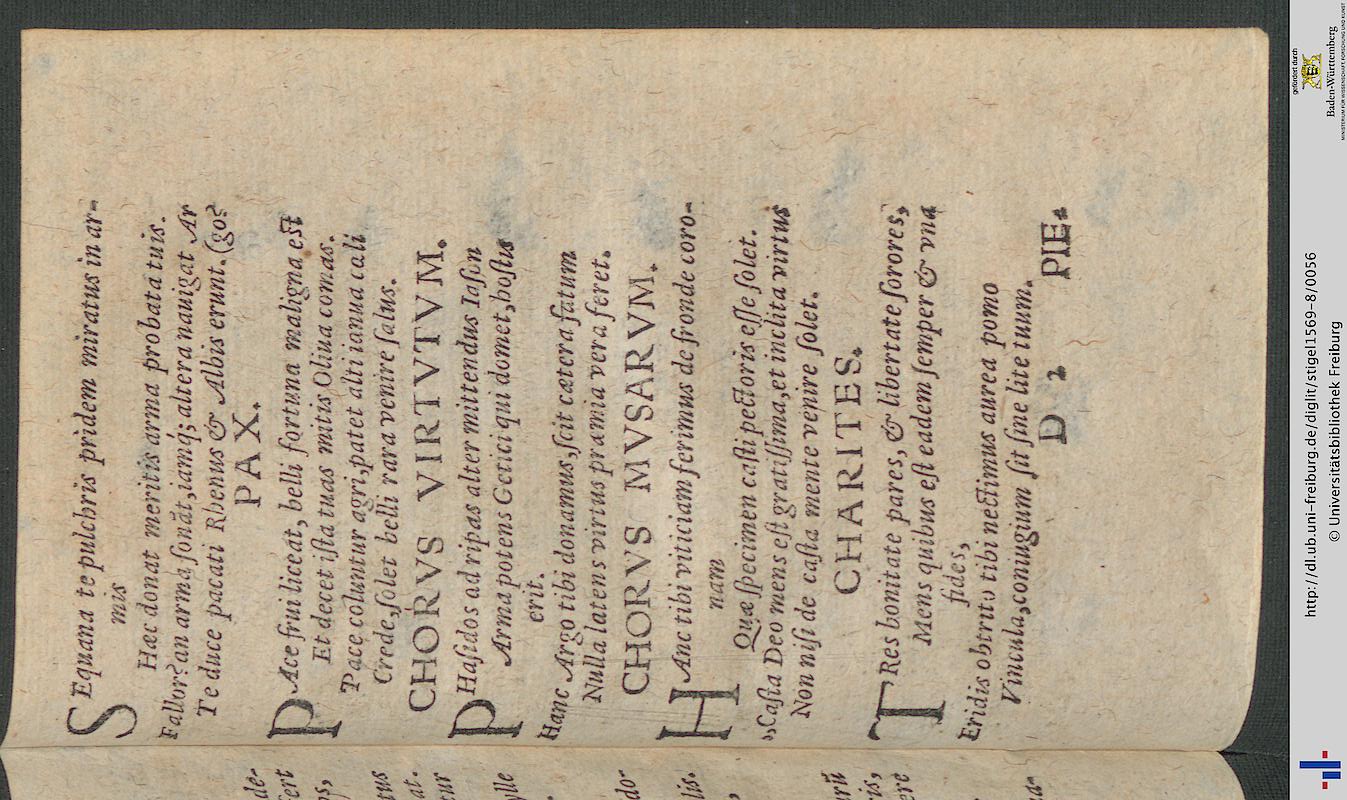 SEquana te pulchris pridem miratus in ar-
mis
Hæc donat meritis arma probata tuis.
Fallor? an arma sonãt, iamq́; altera nauigat Ar
Te duce pacati Rhenus & Albis erunt. (go?
PAX.
PAce frui liceat, belli fortuna maligna est
Et decet ista tuas mitis Oliua comas.
Pace coluntur agri, patet alti ianua cæli
Crede, solet belli rara venire salus.
CHORVS VIRTVTVM.
PHasidos ad ripas alter mittendus Iason
Arma potens Getici qui domet, hostis
erit.
Hanc Argo tibi donamus, scit cætera fatum
Nulla latens virtus præmia vera feret.
CHORVS MVSARVM.
HAnc tibi viticiam ferimus de fronde coro-
nam
Quæ specimen casti pectoris esse solet.
„Casta Deo mens est gratissima, et inclita virtus
Non nisi de casta mente venire solet.
CHARITES.
TRes bonitate pares, & libertate sorores,
Mens quibus est eadem semper & vna
fides,
Eridis obtrito tibi nectimus aurea pomo
Vincula, coniugium sit sine lite tuum.
D 2 PIE.
de-
fert
tus
at.
tur
ylle
do-
lis.
rũ
ris,
ere
na-
gefördert durch
Baden-Württemberg
MINISTERIUM FÜR WISSENSCHAFT, FORSCHUNG UND KUNST
http://dl.ub.uni-freiburg.de/diglit/stigel1569-8/0056
© Universitätsbibliothek Freiburg